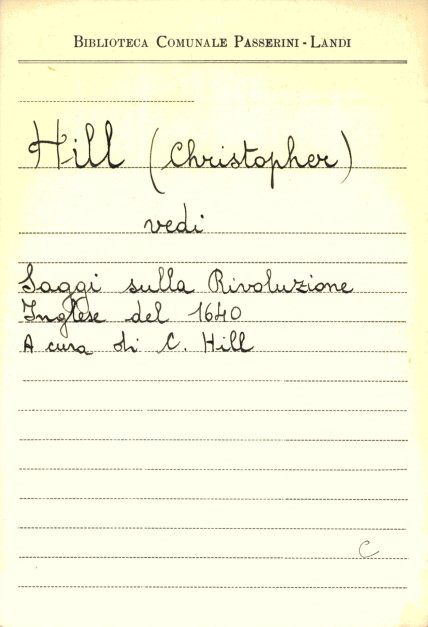 BIBLIOTECA COMUNALE PASSERINI - LANDI
Hill (Christopher)
vedi
Saggi sulla Rivoluzione
Inglese del 1640
A cura di C. Hill
C